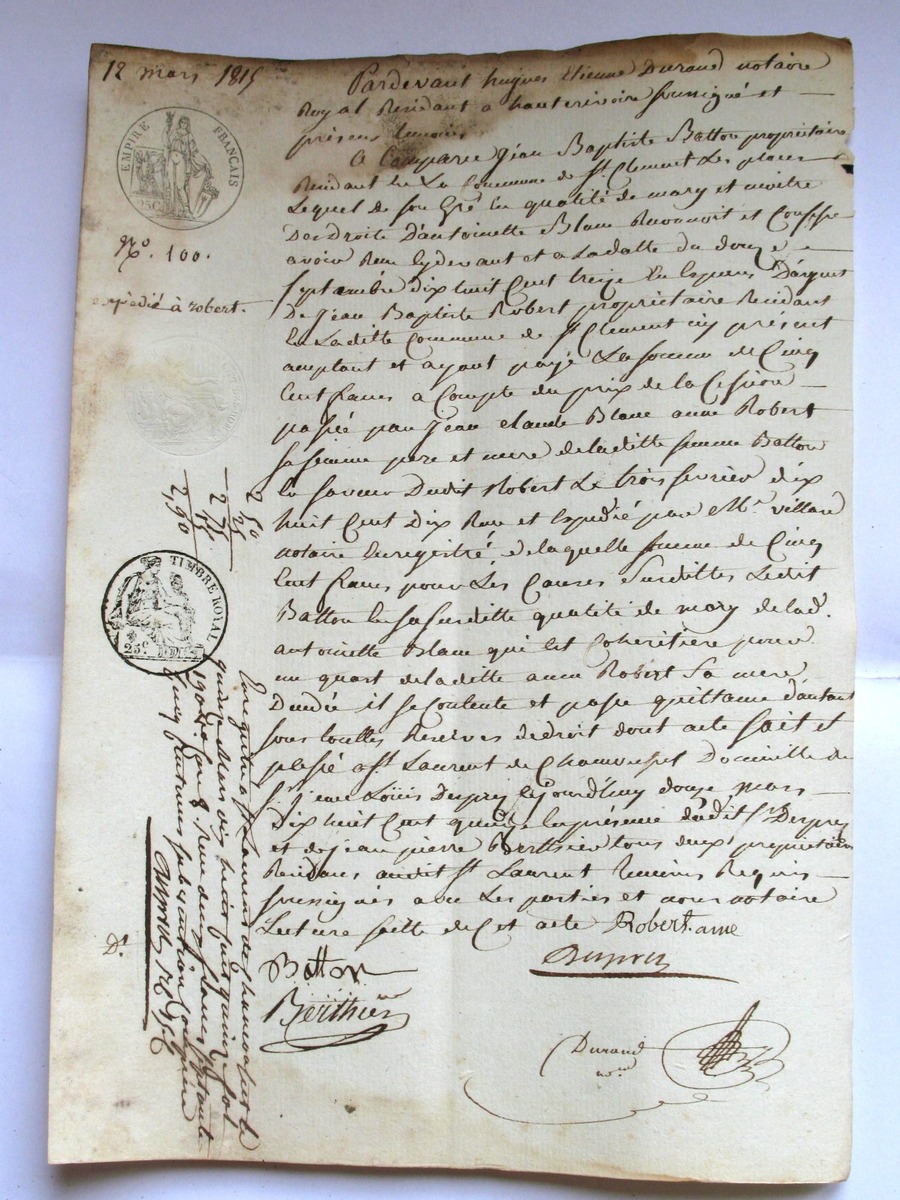 12 mars 1815
Pardevant hugues Etienne Durand notaire
Royal Residant a hauterivoire soussigné et
présens temoins
a Comparu Jéan Baptiste Batton propriétaire
Residant en La Commune de St. Clement Les places
Lequel de son Gré en qualité de mary et maitre
Des Droits D'antoinette Blanc Reconnoit et Confesse
avoir Reçu cydevant et a Ladatte du douze
septambre dix huit Cent treize En Especes D'argent
De Jéan Baptiste Robert propriétaire Residant
En Laditte Commune de St Clement icy présent
acceptant et ayant payé La somme de Cinq
Cent francs a Compte du prix de la Cession
passée par Jean Claude Blanc anne Robert
sa femme pere et mere de laditte femme Batton
En faveur Dudit Robert Le trois fevrier dix
huit Cent Dix Reçu et Expedié par Me. Villard
notaire Enregistré de laquelle somme de Cinq
Cent francs pour Les Causes Susdittes Ledit
Batton En sa susditte qualité de mary de lad.
antoinette Blanc qui Est Coheritière pour
un quart de laditte anne Robert Sa mere
Decedée il se Contente et passe quittance d'autant
sous touttes Reserves de droit dont acte fait et
passé a St. Laurent de Chamousset Domicille du
Sr. Jean Loüis Dupré Cejourd'huy douze mars
Dix huit Cent quinze En présence dudit Sr. Dupré
et de jean pierre Berthier tous deux propriétaires
Residans audit St Laurent Temoins Requis
soussignés avec Les parties et nous notaire
Lecture faitte de Cet acte Robert. ainé
Batton
Dupré
Berthier
Durand
EMPIRE FRANÇAIS
25C
No. 100.
expédié à robert.
2 50
25
2 75
15
2,90
TIMBRE ROYAL
25c
Enregistré a St Laurent de chamousset le
quinze Mars dix huit cent quinze fol
190 Ro Ce 8. Reçu deux francs septante
Cinq Centimes subvention
Dt.